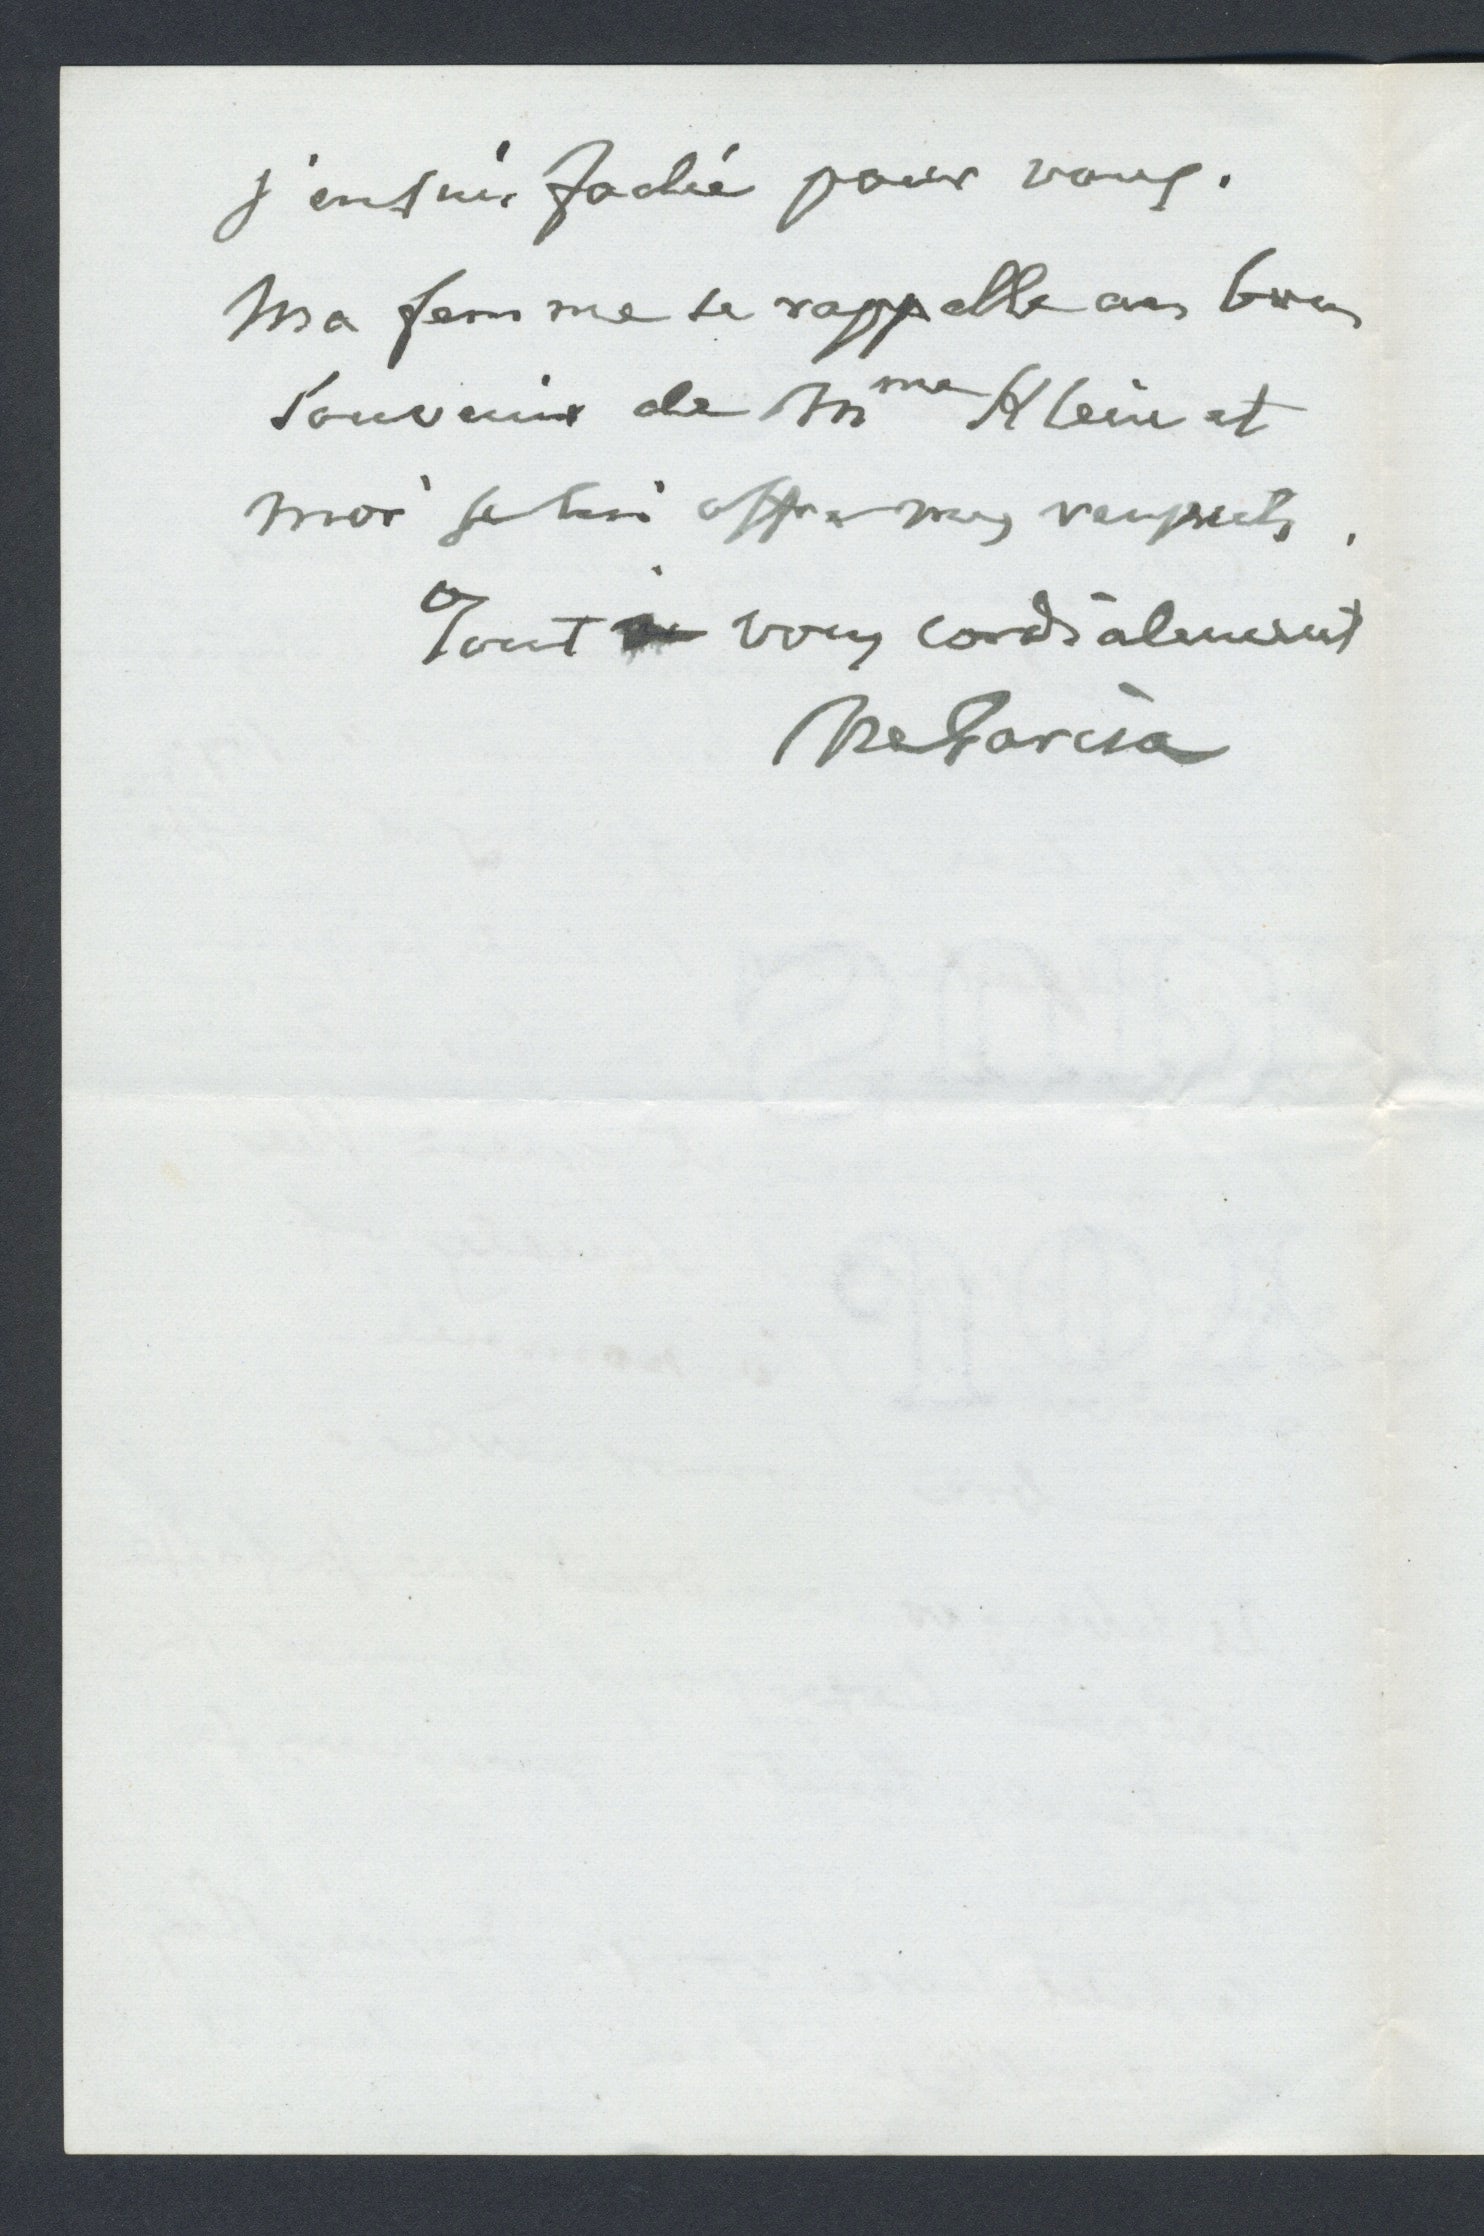 j'en suis fachée pour vous.
Ma femme se rappelle au bon
souvenir de Mme Klein et
moi je lui offre mes respects.
Tout à vous cordialement